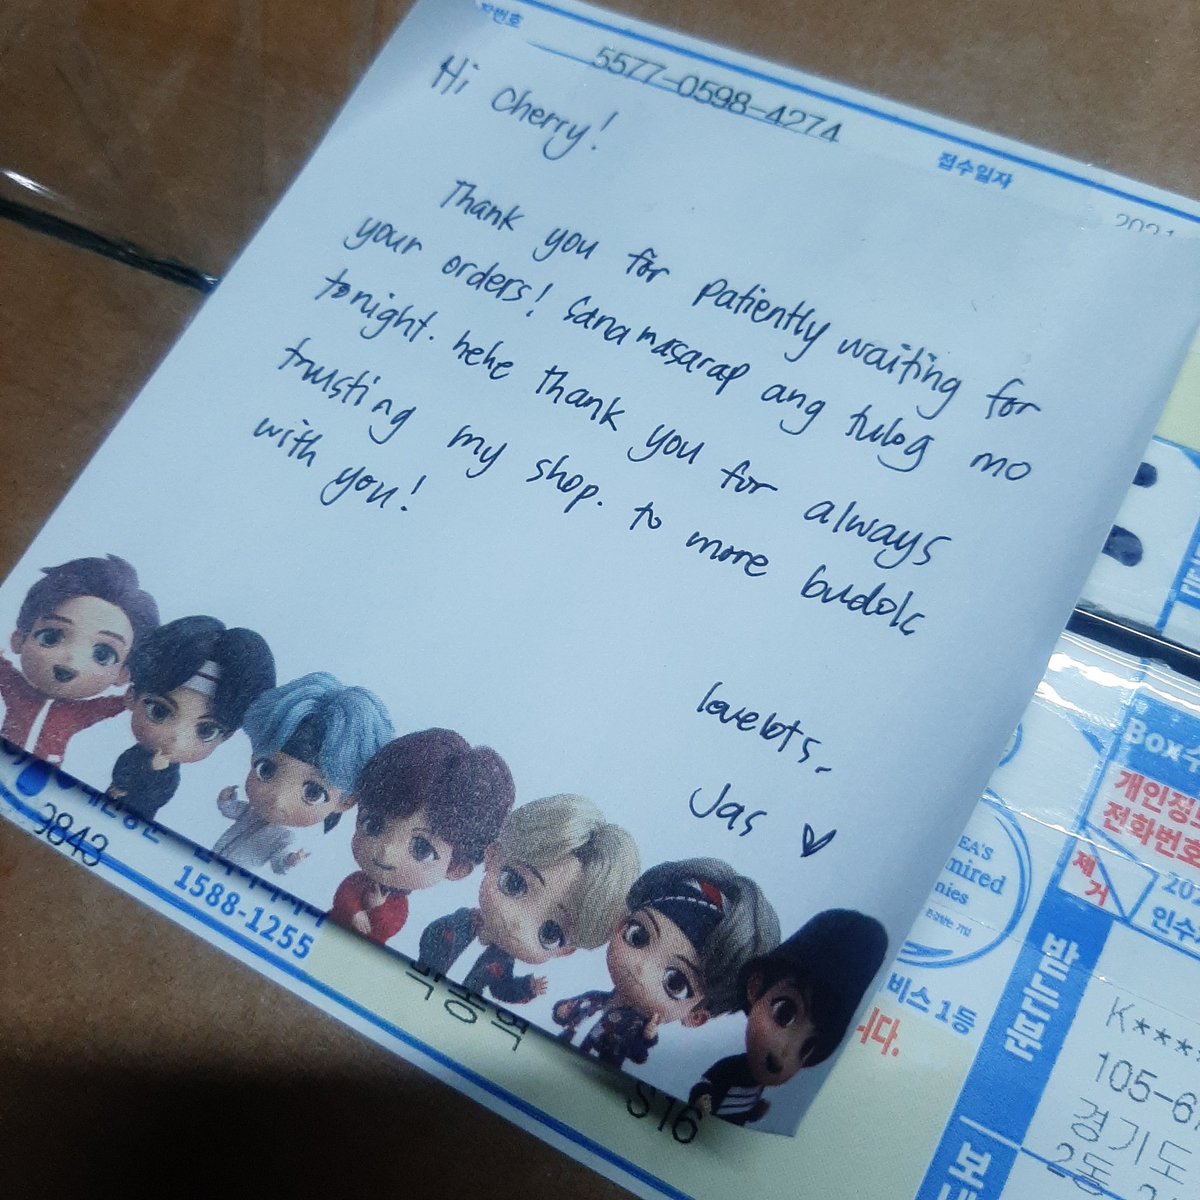 5577-0598-4274
접수일자
2021
Hi Cherry!
Thank you for patiently waiting for
your orders! Sana masarap ang tulog mo
tonight. hehe Thank you for always
trusting my shop. to more budol
with you!
lovelots,
Jas ♡
9843
1588-1255
박종혁
S16
Box수
개인정보
전화번호
제거
인수
EA'S
mired
nies
비스 1등
니다.
받는분
K****
105-6
경기도
2동